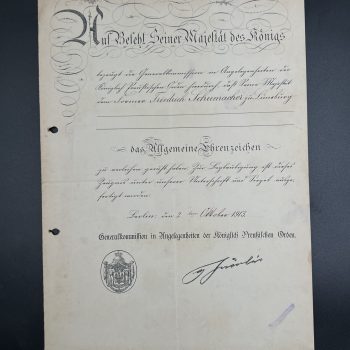 Auf Befehl Seiner Majestät des Königs
bezeugt die Generalkommission in Angelegenheiten der
Königlich Preußischen Orden hierdurch daß Seine Majestät
dem Former Friedrich Schumacher zu Lüneburg
das Allgemeine Ehrenzeichen
zu verleihen geruht haben. Zur Beglaubigung ist dieses
Zeugniß unter unserer Unterschrift und Siegel ausge-
fertigt worden.
Berlin, den 2. ten Oktober 1913.
Generalkommission in Angelegenheiten der Königlich Preußischen Orden.